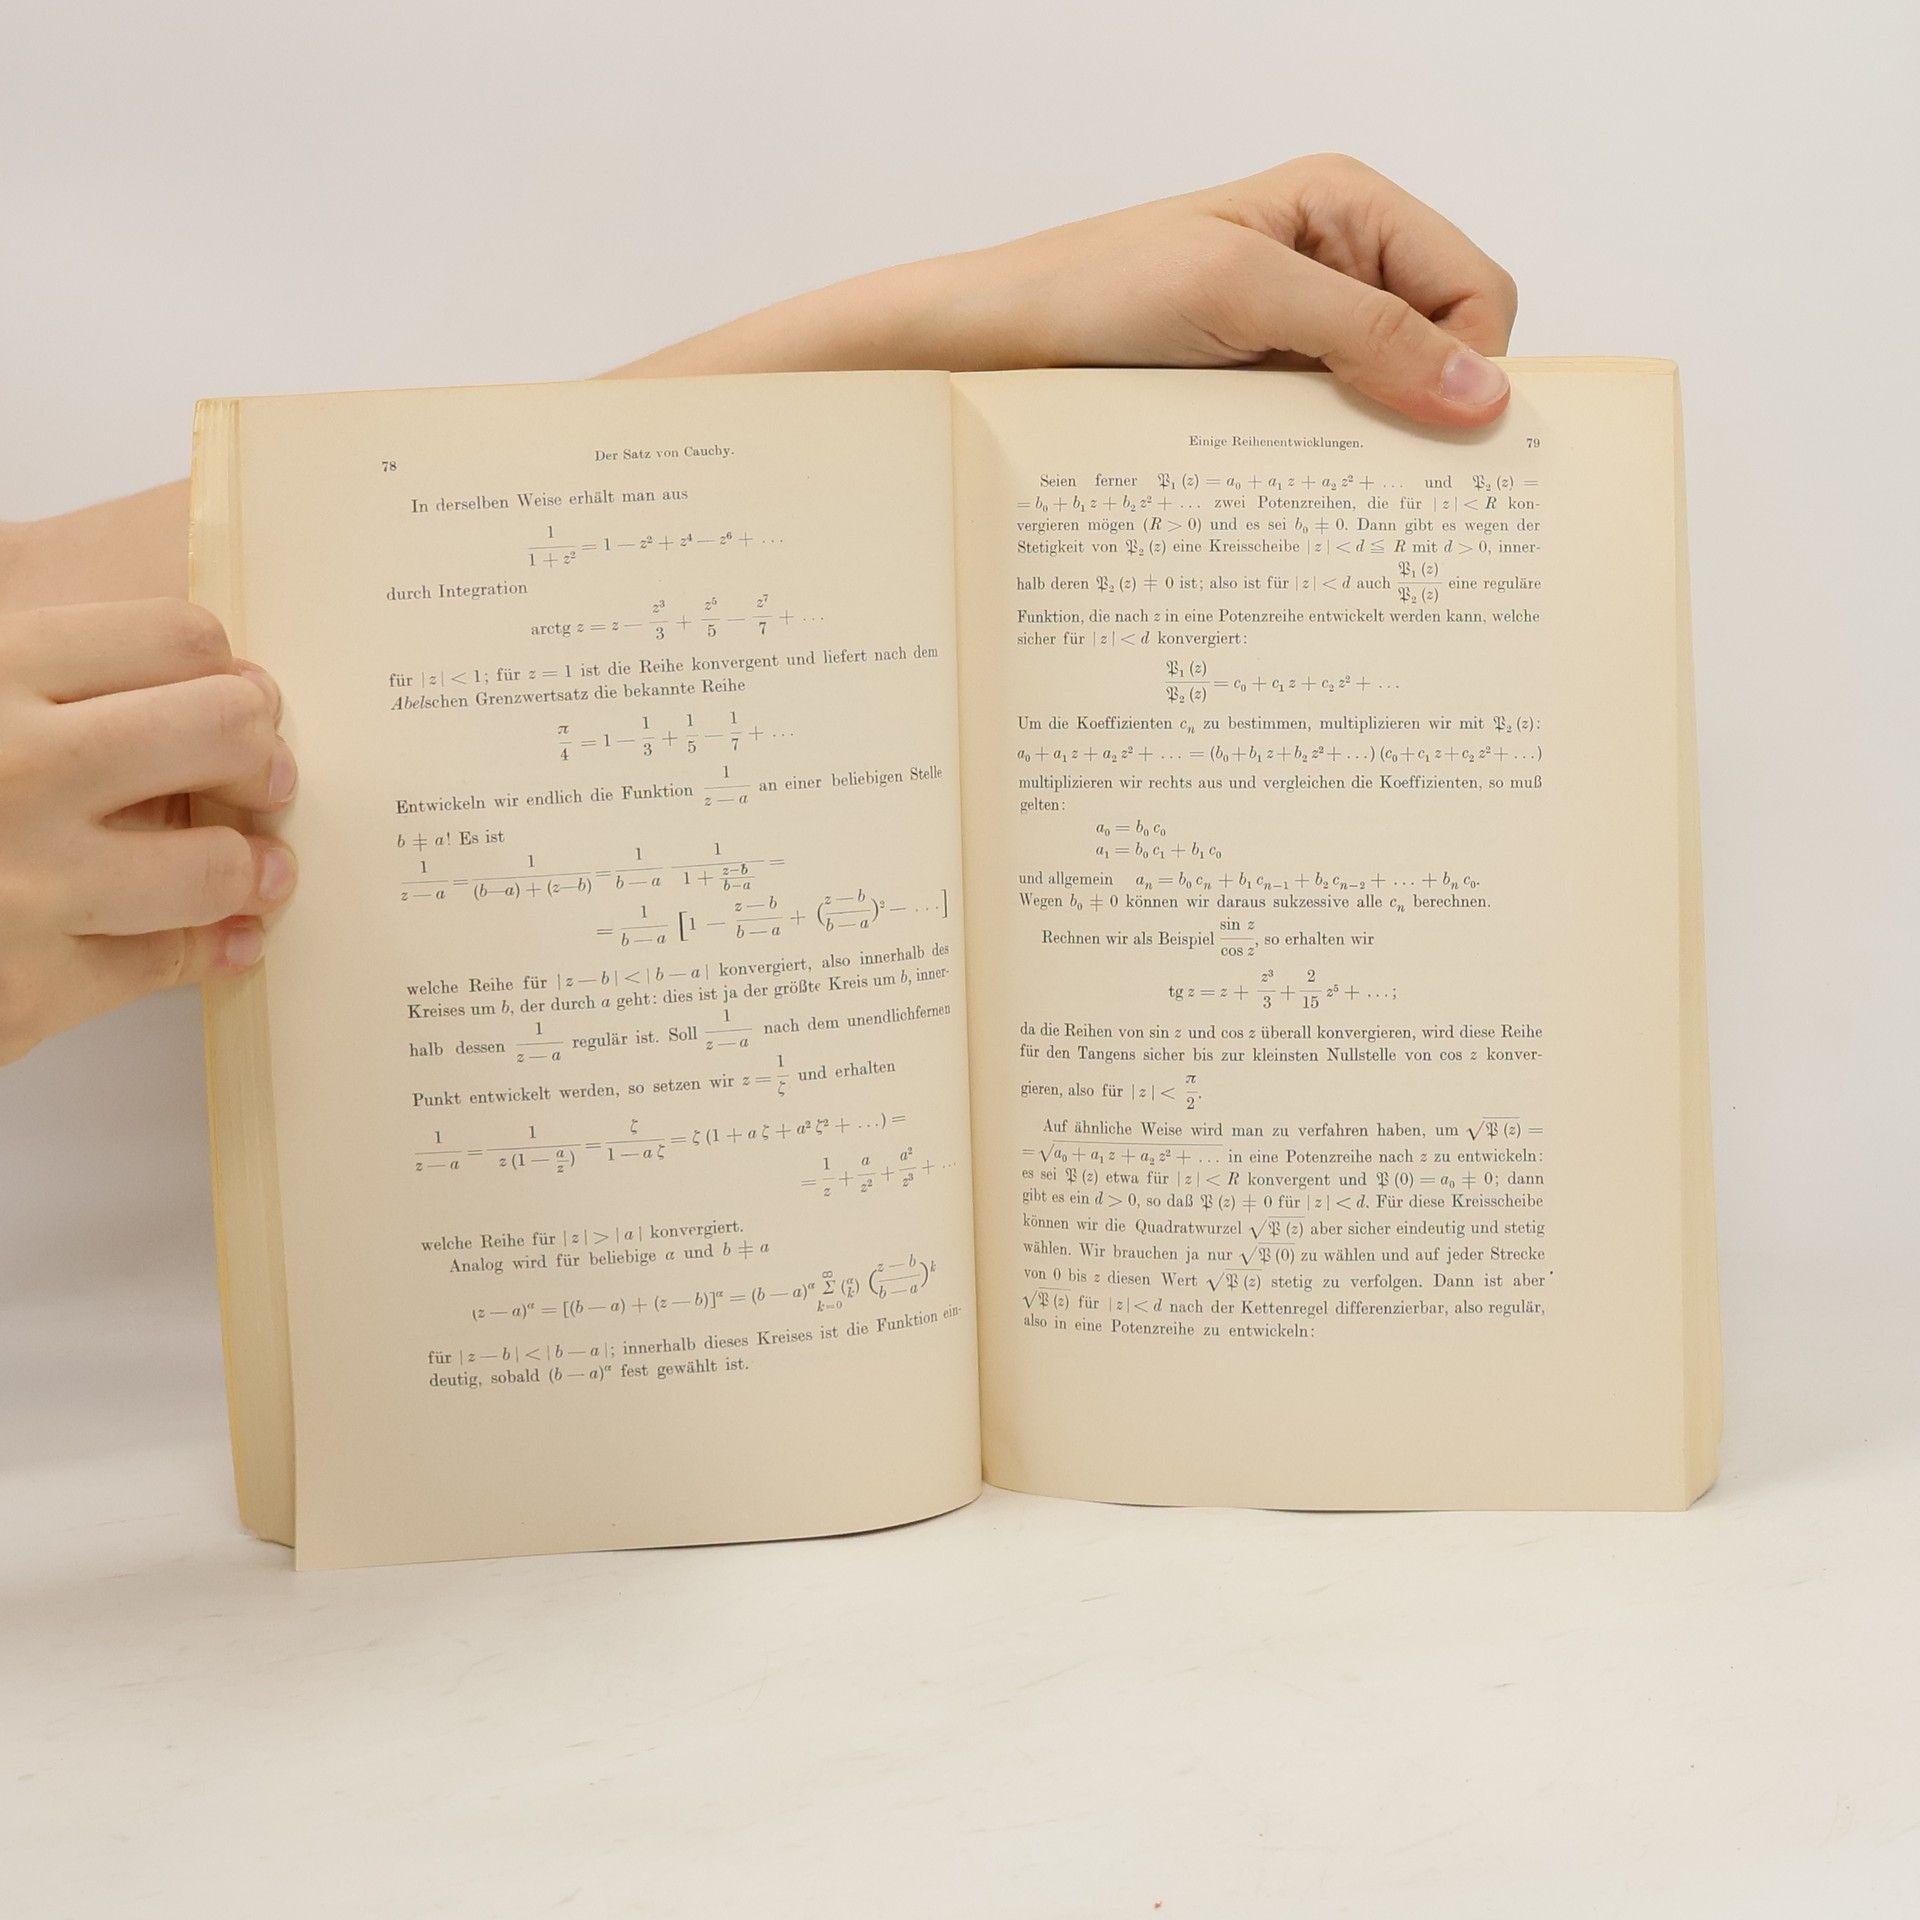 78 Der Satz von Cauchy.
In derselben Weise erhält man aus
1/(1 + z²) = 1 — z² + z⁴ — z⁶ + ...
durch Integration
arctg z = z — z³/3 + z⁵/5 — z⁷/7 + ...
für | z | < 1; für z = 1 ist die Reihe konvergent und liefert nach dem
Abelschen Grenzwertsatz die bekannte Reihe
π/4 = 1 — 1/3 + 1/5 — 1/7 + ...
Entwickeln wir endlich die Funktion 1/(z — a) an einer beliebigen Stelle
b ≠ a! Es ist
1/(z — a) = 1/((b—a) + (z—b)) = 1/(b — a) 1/(1 + (z—b)/(b—a)) =
= 1/(b — a) [1 — (z — b)/(b — a) + ((z — b)/(b — a))² — ...]
welche Reihe für | z — b | < | b — a | konvergiert, also innerhalb des
Kreises um b, der durch a geht: dies ist ja der größte Kreis um b, inner-
halb dessen 1/(z — a) regulär ist. Soll 1/(z — a) nach dem unendlichfernen
Punkt entwickelt werden, so setzen wir z = 1/ζ und erhalten
1/(z — a) = 1/(z (1 — a/z)) = ζ/(1 — a ζ) = ζ (1 + a ζ + a² ζ² + ...) =
= 1/z + a/z² + a²/z³ + ...
welche Reihe für | z | > | a | konvergiert.
Analog wird für beliebige α und b ≠ a
(z — a)^α = [(b — a) + (z — b)]^α = (b — a)^α Σ_{k=0}^∞ (α k) ((z — b)/(b — a))^k
für | z — b | < | b — a |; innerhalb dieses Kreises ist die Funktion ein-
deutig, sobald (b — a)^α fest gewählt ist.
Einige Reihenentwicklungen. 79
Seien ferner 𝔓₁ (z) = a₀ + a₁ z + a₂ z² + ... und 𝔓₂ (z) =
= b₀ + b₁ z + b₂ z² + ... zwei Potenzreihen, die für | z | < R kon-
vergieren mögen (R > 0) und es sei b₀ ≠ 0. Dann gibt es wegen der
Stetigkeit von 𝔓₂ (z) eine Kreisscheibe | z | < d ≦ R mit d > 0, inner-
halb deren 𝔓₂ (z) ≠ 0 ist; also ist für | z | < d auch 𝔓₁ (z)/𝔓₂ (z) eine reguläre
Funktion, die nach z in eine Potenzreihe entwickelt werden kann, welche
sicher für | z | < d konvergiert:
𝔓₁ (z)/𝔓₂ (z) = c₀ + c₁ z + c₂ z² + ...
Um die Koeffizienten cₙ zu bestimmen, multiplizieren wir mit 𝔓₂ (z):
a₀ + a₁ z + a₂ z² + ... = (b₀ + b₁ z + b₂ z² + ...) (c₀ + c₁ z + c₂ z² + ...)
multiplizieren wir rechts aus und vergleichen die Koeffizienten, so muß
gelten:
a₀ = b₀ c₀
a₁ = b₀ c₁ + b₁ c₀
und allgemein aₙ = b₀ cₙ + b₁ cₙ₋₁ + b₂ cₙ₋₂ + ... + bₙ c₀.
Wegen b₀ ≠ 0 können wir daraus sukzessive alle cₙ berechnen.
Rechnen wir als Beispiel sin z/cos z, so erhalten wir
tg z = z + z³/3 + 2/15 z⁵ + ...;
da die Reihen von sin z und cos z überall konvergieren, wird diese Reihe
für den Tangens sicher bis zur kleinsten Nullstelle von cos z konver-
gieren, also für | z | < π/2.
Auf ähnliche Weise wird man zu verfahren haben, um √𝔓 (z) =
= √(a₀ + a₁ z + a₂ z² + ...) in eine Potenzreihe nach z zu entwickeln:
es sei 𝔓 (z) etwa für | z | < R konvergent und 𝔓 (0) = a₀ ≠ 0; dann
gibt es ein d > 0, so daß 𝔓 (z) ≠ 0 für | z | < d. Für diese Kreisscheibe
können wir die Quadratwurzel √𝔓 (z) aber sicher eindeutig und stetig
wählen. Wir brauchen ja nur √𝔓 (0) zu wählen und auf jeder Strecke
von 0 bis z diesen Wert √𝔓 (z) stetig zu verfolgen. Dann ist aber
√𝔓 (z) für | z | < d nach der Kettenregel differenzierbar, also regulär,
also in eine Potenzreihe zu entwickeln: